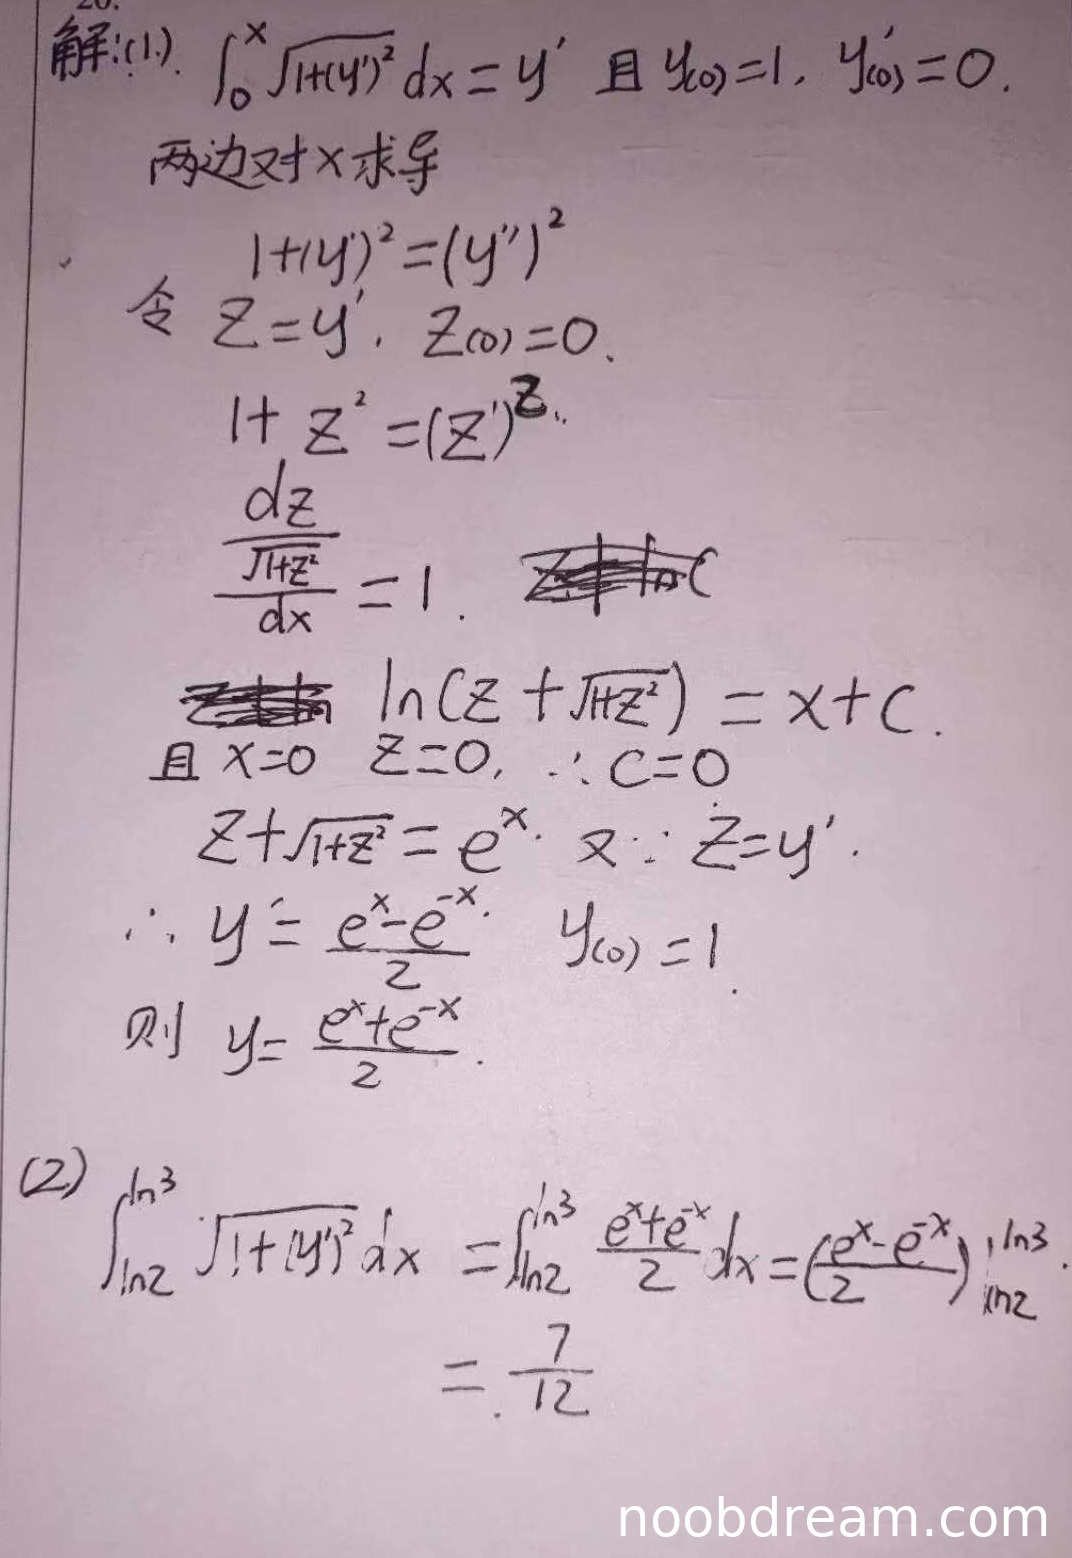 20.
解:(1). ∫₀ˣ √(1+(y')²) dx = y' 且 y(0)=1. y'(0)=0.
两边对x求导
1+(y')² = (y'')²
令 Z=y'. Z(0)=0.
1+ Z² = (Z')².
dz/√(1+Z²)/dx = 1.
ln(Z+√(1+Z²)) = x+C.
且 x=0 Z=0, ∴ C=0
Z+√(1+Z²) = eˣ. 又∵ Z=y'.
∴ y' = (eˣ-e⁻ˣ)/2 y(0)=1.
则 y = (eˣ+e⁻ˣ)/2.
(2) ∫_{ln2}^{ln3} √(1+(y')²) dx = ∫_{ln2}^{ln3} (eˣ+e⁻ˣ)/2 dx = ((eˣ-e⁻ˣ)/2)|_{ln2}^{ln3}.
= 7/12
noobdream.com